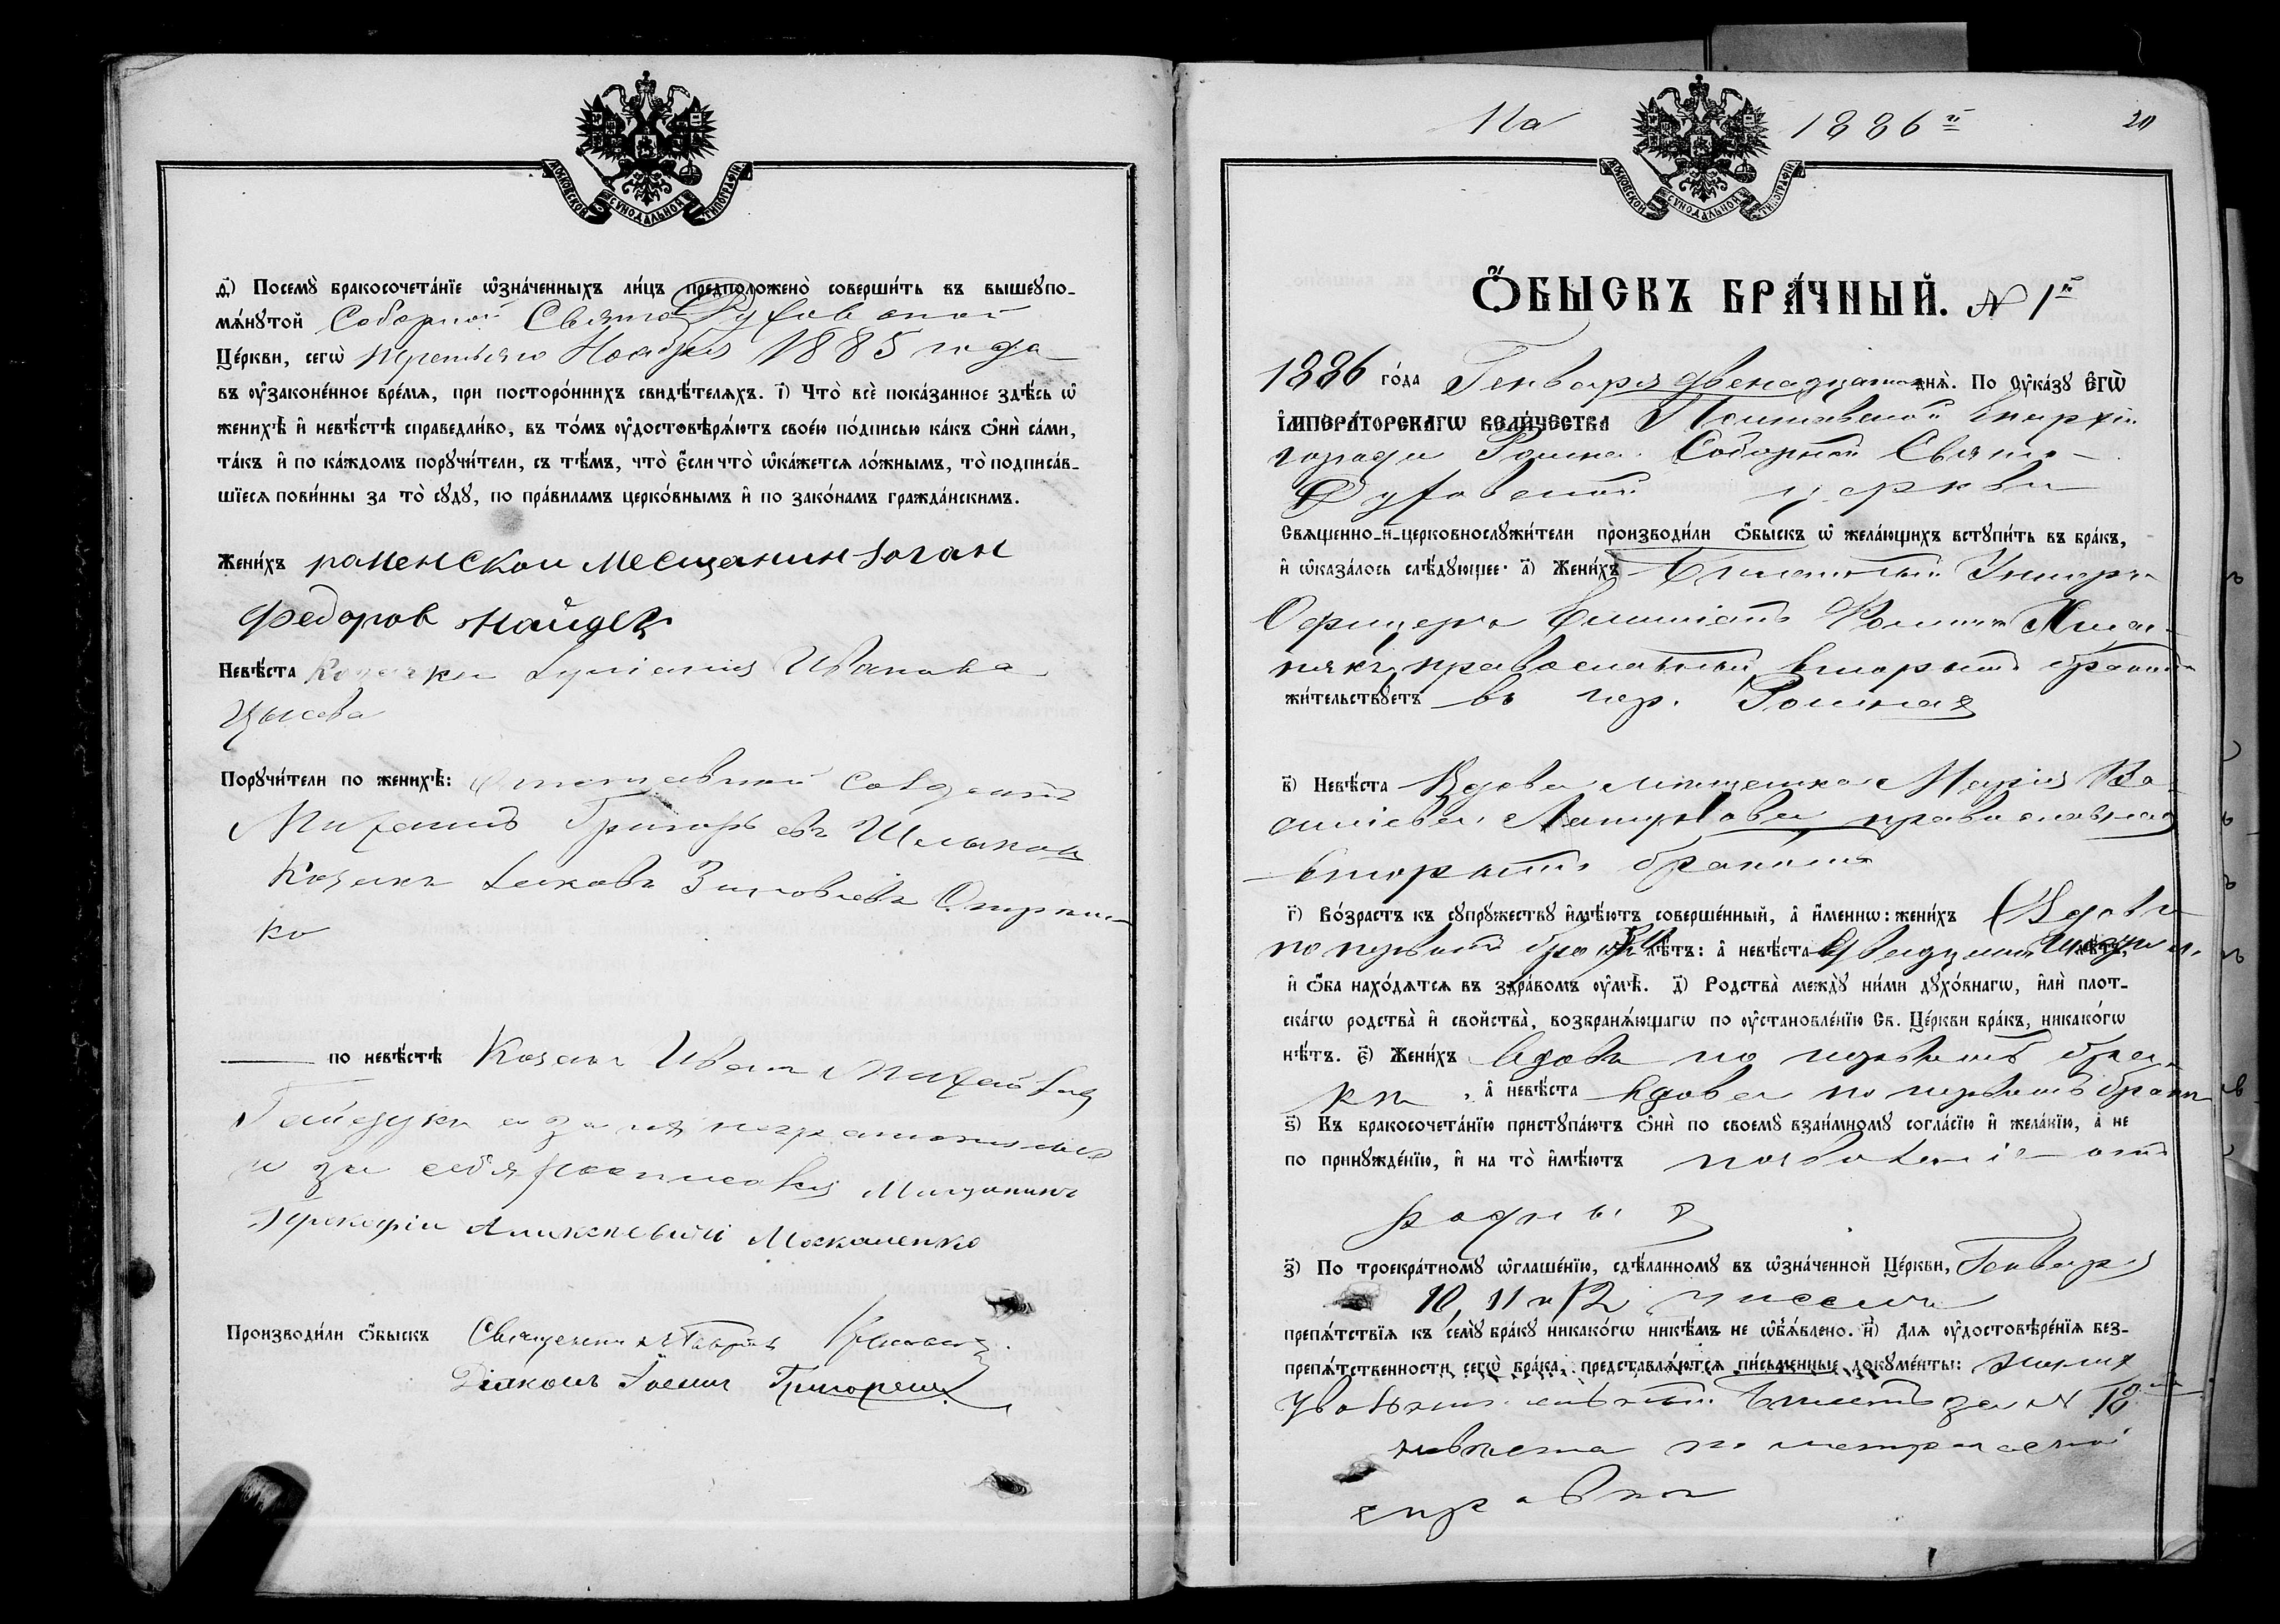 МОСКОВСКОЙ СѴНОДАЛЬНОЙ ТИПОГРАФІИ
д҃) Посемꙋ̀ бракосочета́нїе ѡ҆зна́ченныхъ ли́цъ предположено̀ соверши́ть въ вышеꙋпо-
мѧ́нꙋтой Соборной Свято Духовской
Це́ркви, сегѡ̀ третьяго Ноября 1885 года
въ ᲂу҆законе́нное вре́мѧ, при посторо́ннихъ свидѣ́телѧхъ. і҃) Что̀ всѐ пока́занное здѣ́сь ѡ҆
женихѣ̀ и҆ невѣ́стѣ справедли́во, въ то́мъ ᲂу҆достовѣрѧ́ютъ свое́ю по́дписью ка́къ ѻ҆нѝ са́ми,
та́къ и҆ по ка́ждомъ порꙋчи́тели, съ тѣ́мъ, что̀ є҆́сли что̀ ѡ҆ка́жетсѧ ло́жнымъ, то̀ подписа́в-
шїесѧ пови́нны за то̀ сꙋдꙋ̀, по пра́виламъ церко́внымъ и҆ по зако́намъ гражда́нскимъ.
Жени́хъ роменской мещанин Иоган
Федоров
Невѣ́ста Козачка Иванова
Порꙋчи́тели по женихѣ̀: отставной Солдатъ
Михаилъ Григорьевъ
Козакъ Іаковъ Зиновіевъ
ко
по невѣ́стѣ Козакъ Иванъ Михайловъ
Гайдукъ а за ихъ неграмотных
и за себя росписався Мищанинъ
Прокофій Аликсневичь Москаленко
Производи́ли ѻ҆́быскъ Священникъ
Діаконъ Іоаннъ Григоревичъ
На 1886й 20
МОСКОВСКОЙ СѴНОДАЛЬНОЙ ТИПОГРАФІИ
Ѻ҆́БЫСКЪ БРА́ЧНЫЙ. N 1й
1886 го́да Генваря двенадцатаго днѧ̀. По ᲂу҆ка́зꙋ Є҆ГѠ̀
І҆МПЕРА́ТОРСКАГѠ ВЕЛИ́ЧЕСТВА Полтавской Епархіи
города Ромна Соборной Свято
Духовской церкви
Свѧщенно-и҆-церковнослꙋжи́тели производи́ли ѻ҆́быскъ ѡ҆ жела́ющихъ встꙋпи́ть въ бра́къ,
и҆ ѡ҆каза́лось слѣ́дꙋющее: а҃) Жени́хъ Билетный Унтеръ
Офицеръ
православный вторымъ бракомъ
жи́тельствꙋетъ въ гор. Ромнах
в҃) Невѣ́ста Вдова мищанка Марія Ва-
силіева православная
вторымъ бракомъ
г҃) Во́зрастъ къ сꙋпрꙋ́жествꙋ и҆мѣ́ютъ соверше́нный, а҆ и҆́менно: жени́хъ Вдовъ
по первомъ лѣ́тъ: а҆ невѣ́ста
и҆ ѻ҆́ба нахо́дѧтсѧ въ здра́вомъ ᲂу҆мѣ̀. д҃) Родства̀ междꙋ̀ ни́ми дꙋхо́внагѡ, и҆лѝ плот-
ска́гѡ родства̀ и҆ свойства̀, возбранѧ́ющагѡ по ᲂу҆становле́нїю Св. Це́ркви бра́къ, никако́гѡ
нѣ́тъ. є҃) Жени́хъ вдовъ по первомъ бра-
кѣ, а҆ невѣ́ста вдова по первомъ бракѣ
ѕ҃) Къ бракосочета́нїю пристꙋпа́ютъ ѻ҆нѝ по своемꙋ̀ взаи́мномꙋ согла́сїю и҆ жела́нїю, а҆ не
по принꙋжде́нїю, и҆ на то̀ и҆мѣ́ютъ позволеніе отъ
родных
з҃) По троекра́тномꙋ ѡ҆глаше́нїю, сдѣ́ланномꙋ въ ѡ҆зна́ченной Це́ркви, Генваря
10, 11 и 12 чиселъ
препѧ́тствїѧ къ семꙋ̀ бра́кꙋ никако́гѡ никѣ́мъ не ѡ҆б̾ѧ́влено. и҃) Длѧ ᲂу҆достовѣре́нїѧ без-
препѧ́тственности сегѡ̀ бра́ка, представлѧ́ютсѧ пи́сьменные докꙋме́нты: жених
увольнительный билетъ за N 18
невѣста по метрической
справки